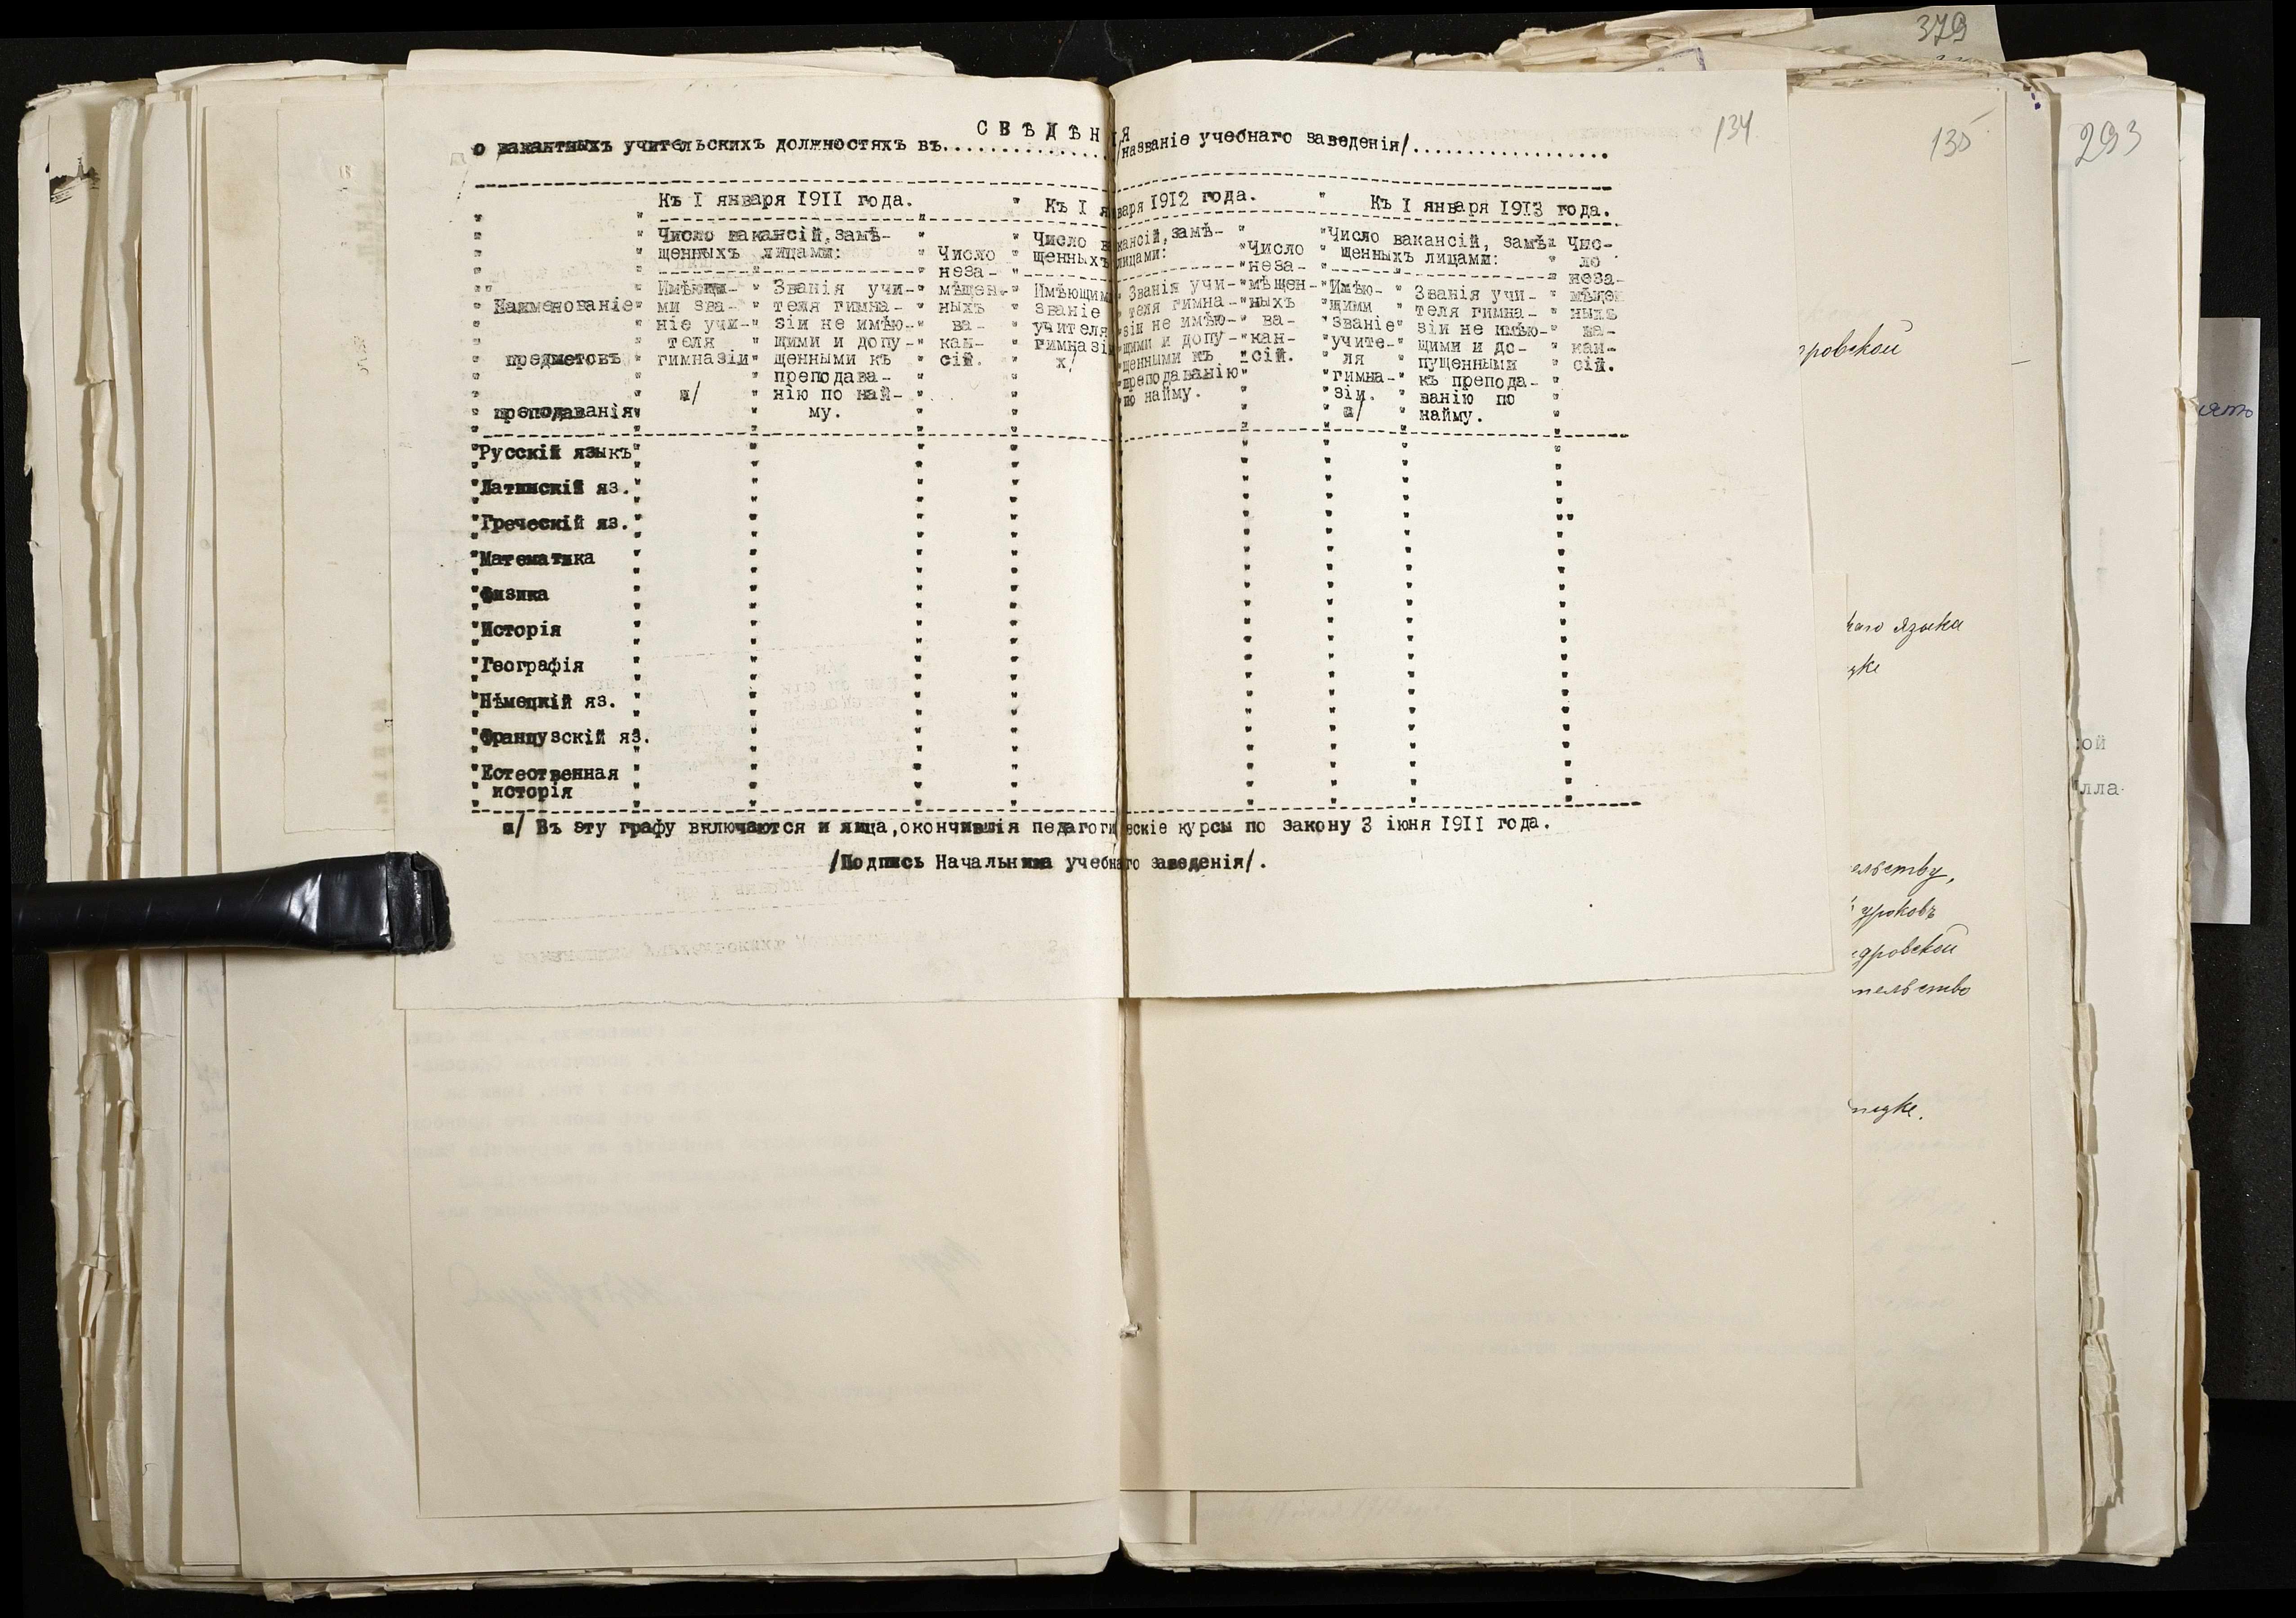 379
134
135
293
СВѢДѢНІЯ
о вакантныхъ учительскихъ должностяхъ въ................/названіе учебнаго заведенія/..................
Къ I января 1911 года. " Къ I января 1912 года. " Къ I января 1913 года.
Наименованіе
предметовъ
преподаванія
Число вакансій, замѣ-
щенныхъ лицами:
Имѣющи-
ми зва-
ніе учи-
теля
гимназіи
х/
Званія учи-
теля гимна-
зіи не имѣю-
щими и допу-
щенными къ
преподава-
нію по най-
му.
Число
неза-
мѣщен-
ныхъ
ва-
кан-
сій.
Число вакансій, замѣ-
щенныхъ лицами:
Имѣющими
званіе
учителя
гимназіи
х/
Званія учи-
теля гимна-
зіи не имѣю-
щими и допу-
щенными къ
преподаванію
по найму.
Число
неза-
мѣщен-
ныхъ
ва-
кан-
сій.
Число вакансій, замѣ-
щенныхъ лицами:
Имѣю-
щими
званіе
учите-
ля
гимна-
зіи.
х/
Званія учи-
теля гимна-
зіи не имѣю-
щими и до-
пущенными
къ препода-
ванію по
найму.
Чис-
ло
неза-
мѣщен
ныхъ
ва-
кан-
сій.
Русскій языкъ
Латинскій яз.
Греческій яз.
Математика
Физика
Исторія
Географія
Нѣмецкій яз.
Французскій яз.
Естественная
исторія
х/ Въ эту графу включаются и лица, окончившія педагогическіе курсы по закону 3 іюня 1911 года.
/Подпись Начальника учебнаго заведенія/.
ровской
каго языка
ельству,
уроковъ
дровской
тельство
ой
лла-